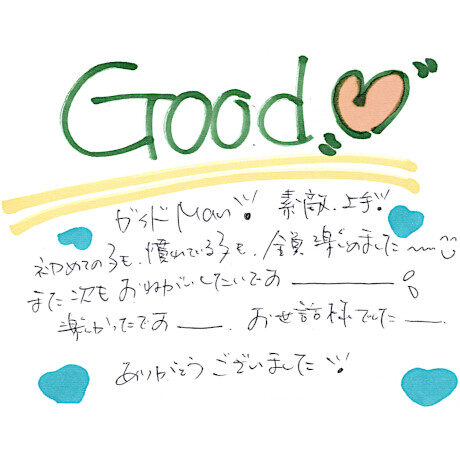 Good
ガイドMan! 素敵、上手!
初めての方も、慣れている方も、全員楽しめました〜
また次もおねがいしたいでーす
楽しかったでーす。お世話様でしたー
ありがとうございました!